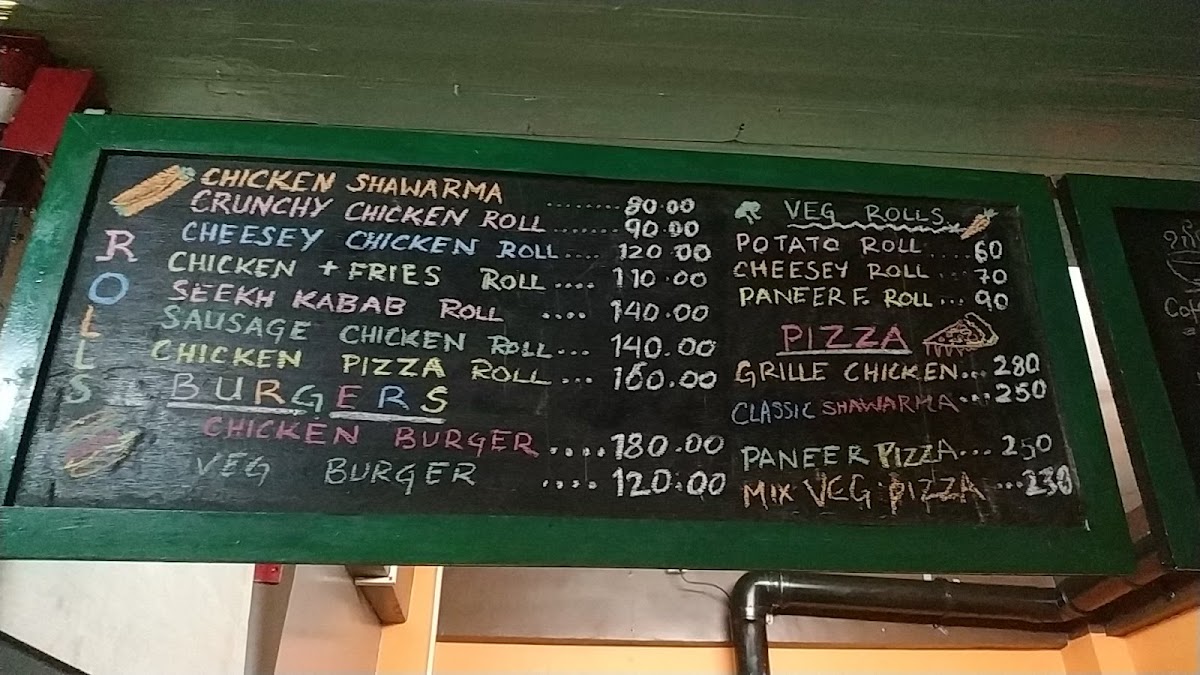 ROLLS
CHICKEN SHAWARMA ........80.00
CRUNCHY CHICKEN ROLL.......90.00
CHEESEY CHICKEN ROLL....120.00
CHICKEN + FRIES ROLL....110.00
SEEKH KABAB ROLL ....140.00
SAUSAGE CHICKEN ROLL...140.00
CHICKEN PIZZA ROLL...160.00
BURGERS
CHICKEN BURGER....180.00
VEG BURGER ....120.00
VEG ROLLS
POTATO ROLL....60
CHEESEY ROLL...70
PANEER F. ROLL...90
PIZZA
GRILLE CHICKEN...280
CLASSIC SHAWARMA...250
PANEER PIZZA...250
MIX VEG PIZZA...230